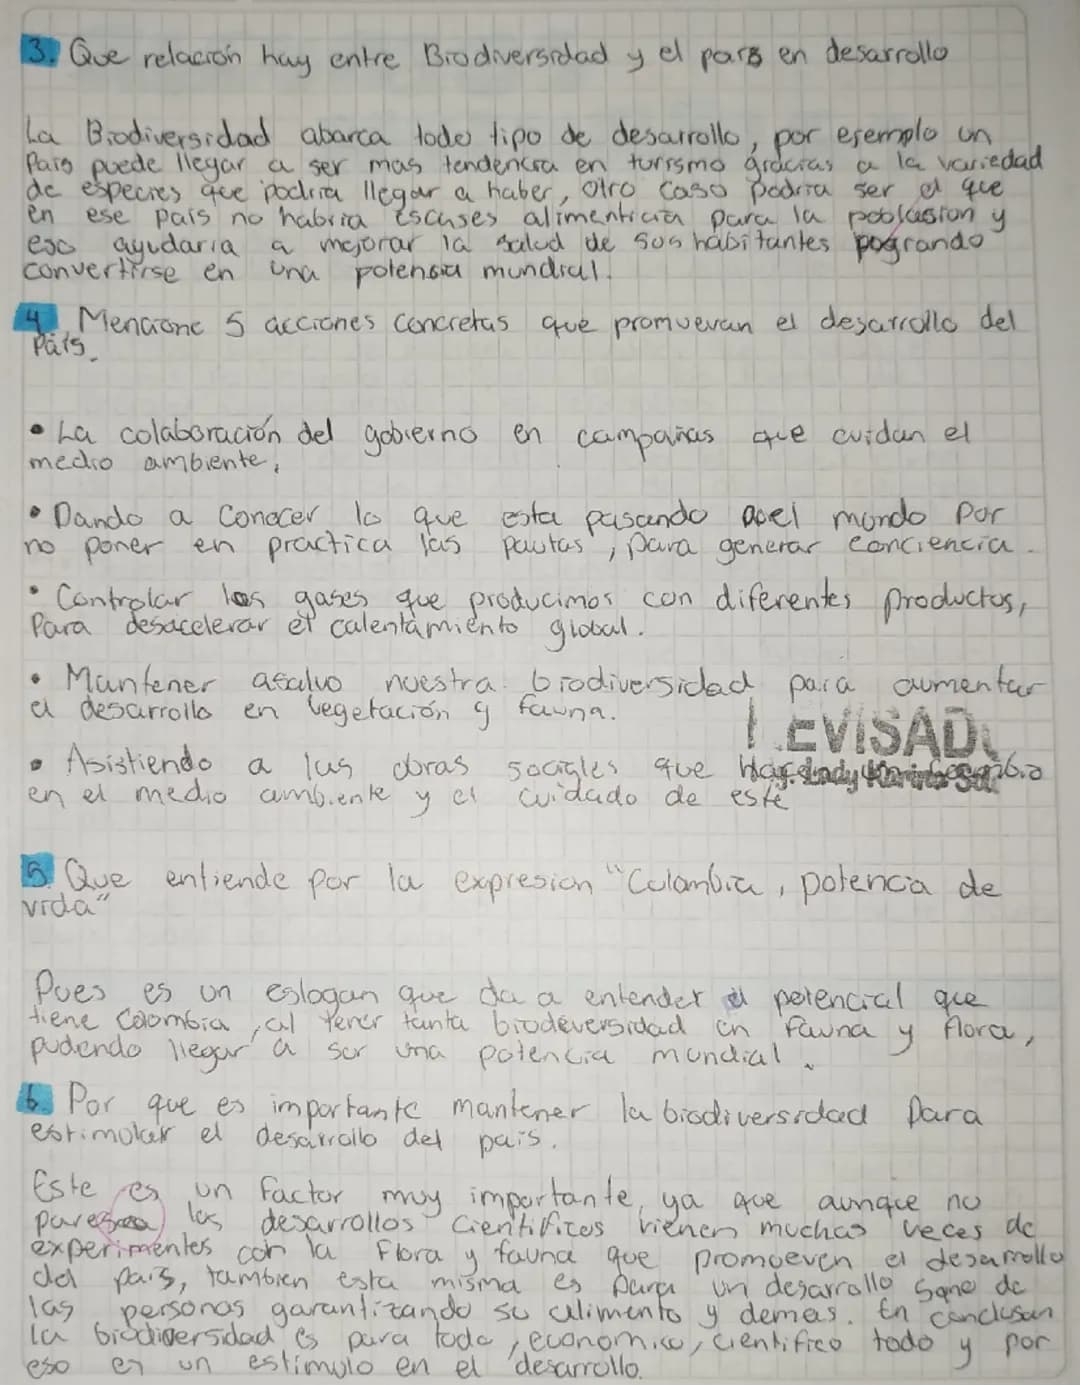 3. Que relación hay entre Biodiversidad y el pais en desarrollo
La Biodiversidad abarca todo tipo de desarrollo, por ejemplo un
Pais puede llegar a ser mas tendencia en turismo gracias a la variedad
de especies que podria llegar a haber, otro caso podria ser el que
en ese país no habria escases alimenticia para la poblasion y
eso ayudaria a mejorar la salud de sus habitantes pogrando
convertirse en una potensia mundial.
4. Mencione 5 acciones concretas que promuevan el desarrollo del
País.
• La colaboración del gobierno en campañas que cuidan el
medio ambiente.
• Dando a conocer lo que esta pasando el mundo por
no poner en practica las pautas, para generar conciencia.
• Controlar los gases que producimos con diferentes productos,
Para desacelerar el calentamiento global.
• Mantener asalvo nuestra biodiversidad para aumentar
el desarrollo en vegetación y fauna.
EVISAD
• Asistiendo a las obras sociales que hacen un
en el medio ambiente y el cuidado de este
5. Que entiende por la expresion "Colombia, potencia de
vida"
Pues es un eslogan que da a entender el potencial que
tiene Colombia, al tener tanta biodeversidad en fauna y flora,
pudendo llegar a ser una potencia mundial.
6. Por que es importante mantener la biodiversidad Para
estimular el desarrollo del pais.
Este es un factor muy importante, ya que aunque no
paresca los desarrollos cientificos vienen muchas veces de
experimentes con la Flora y fauna que promoeven el desarrollo
del pais, tambien esta misma es para un desarrollo sano de
las personas garantizando su alimento y demas. En conclusan
la biodiversidad es para todo, economico, cientifico todo y por
eso es un estimulo en el desarrollo.